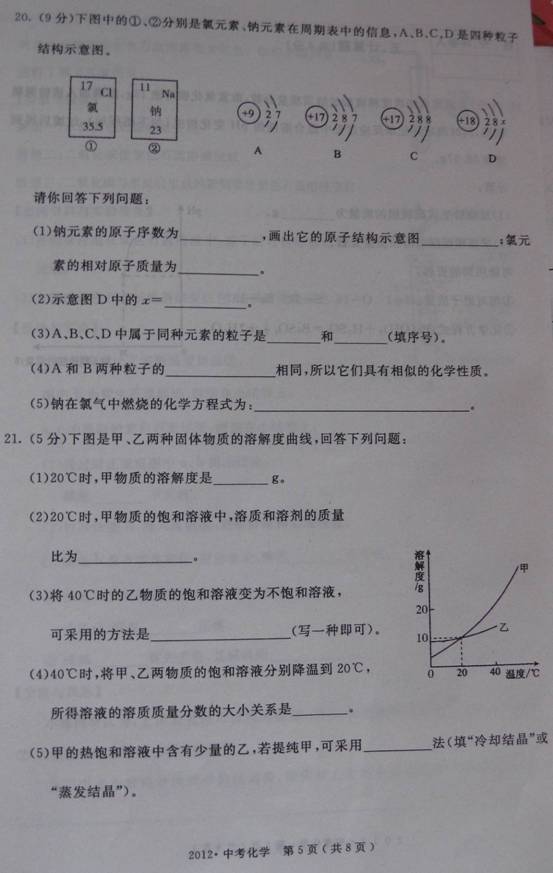 20.(9分)下图中的①、②分别是氯元素、钠元素在周期表中的信息,A、B、C、D是四种粒子
结构示意图。
17 Cl
氯
35.5
①
11 Na
钠
23
②
+9 2 7
A
+17 2 8 7
B
+17 2 8 8
C
+18 2 8 x
D
请你回答下列问题:
(1)钠元素的原子序数为________,画出它的原子结构示意图________;氯元
素的相对原子质量为________。
(2)示意图D中的x=________。
(3)A、B、C、D中属于同种元素的粒子是________和________(填序号)。
(4)A和B两种粒子的________相同,所以它们具有相似的化学性质。
(5)钠在氯气中燃烧的化学方程式为:________。
21.(5分)下图是甲、乙两种固体物质的溶解度曲线,回答下列问题:
(1)20℃时,甲物质的溶解度是________g。
(2)20℃时,甲物质的饱和溶液中,溶质和溶剂的质量
比为________。
(3)将40℃时的乙物质的饱和溶液变为不饱和溶液,
可采用的方法是________(写一种即可)。
(4)40℃时,将甲、乙两物质的饱和溶液分别降温到20℃,
所得溶液的溶质质量分数的大小关系是________。
溶解度/g
甲
20
乙
10
0 20 40 温度/℃
(5)甲的热饱和溶液中含有少量的乙,若提纯甲,可采用________法(填“冷却结晶”或
“蒸发结晶”)。
2012·中考化学 第5页(共8页)